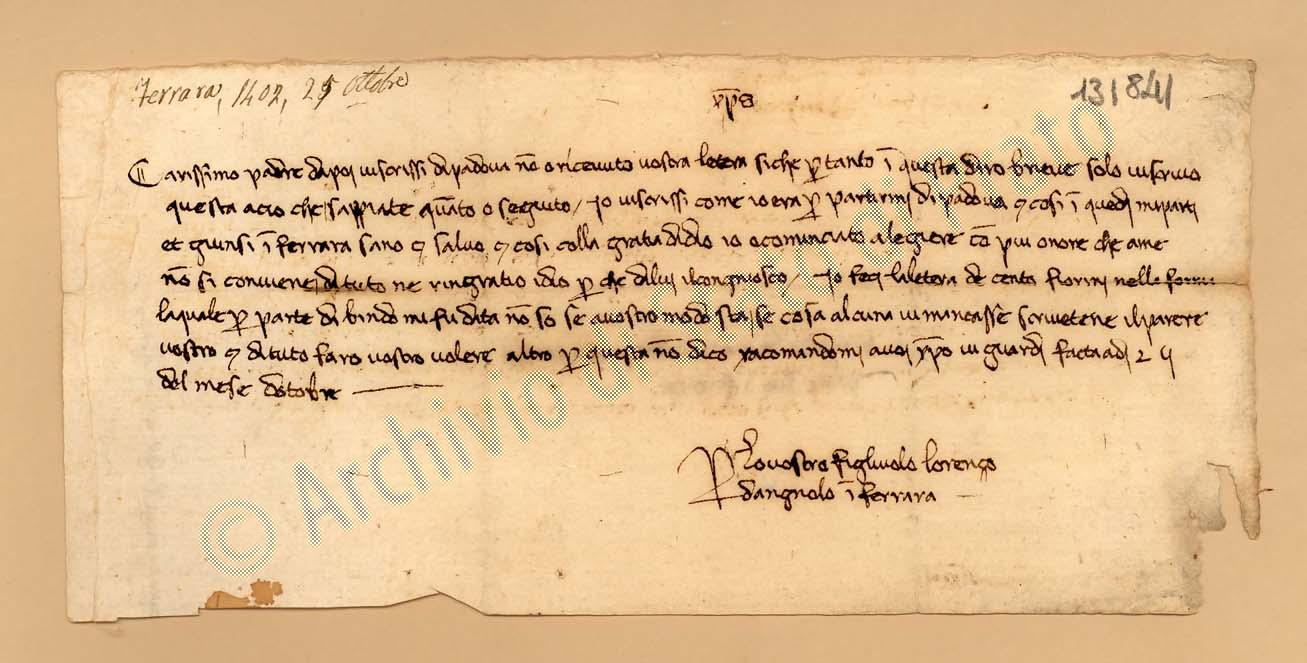 Ferrara, 1402, 25 Ottobre
131841
xp̄s
Carissimo padre dapoj viscrissi dipadova nō o ricevuto vostra letera siche p̱ tanto ī questa diro brieve solo viscrivo
questa acio che sappiate quāto o seguito / Io viscrissi come io era p̱ partirmj di padova et cosi ī quedj mi partj
et giunsi ī ferrara sano et salvo et cosi colla gratia didio io o cominciato a legiere cō piu onore che ame
nō si conviene di tuto ne ringratio idio p̱ che diluj il congniosco / Io fecj la letera de cento fiorinj nella
la quale p̱ parte di bindo mi fu data nō so se a vostro modo sta / se cosa alcuna vi mancasse scrivetene il parere
vostro et di tuto faro vostro volere altro p̱ questa nō dico racomandomj avoj xp̄o vi guardj facta adj 25
del mese dotobre
P Lo vostro figlivolo lorenço
dangnolo ī ferrara
© Archivio di Stato di Prato